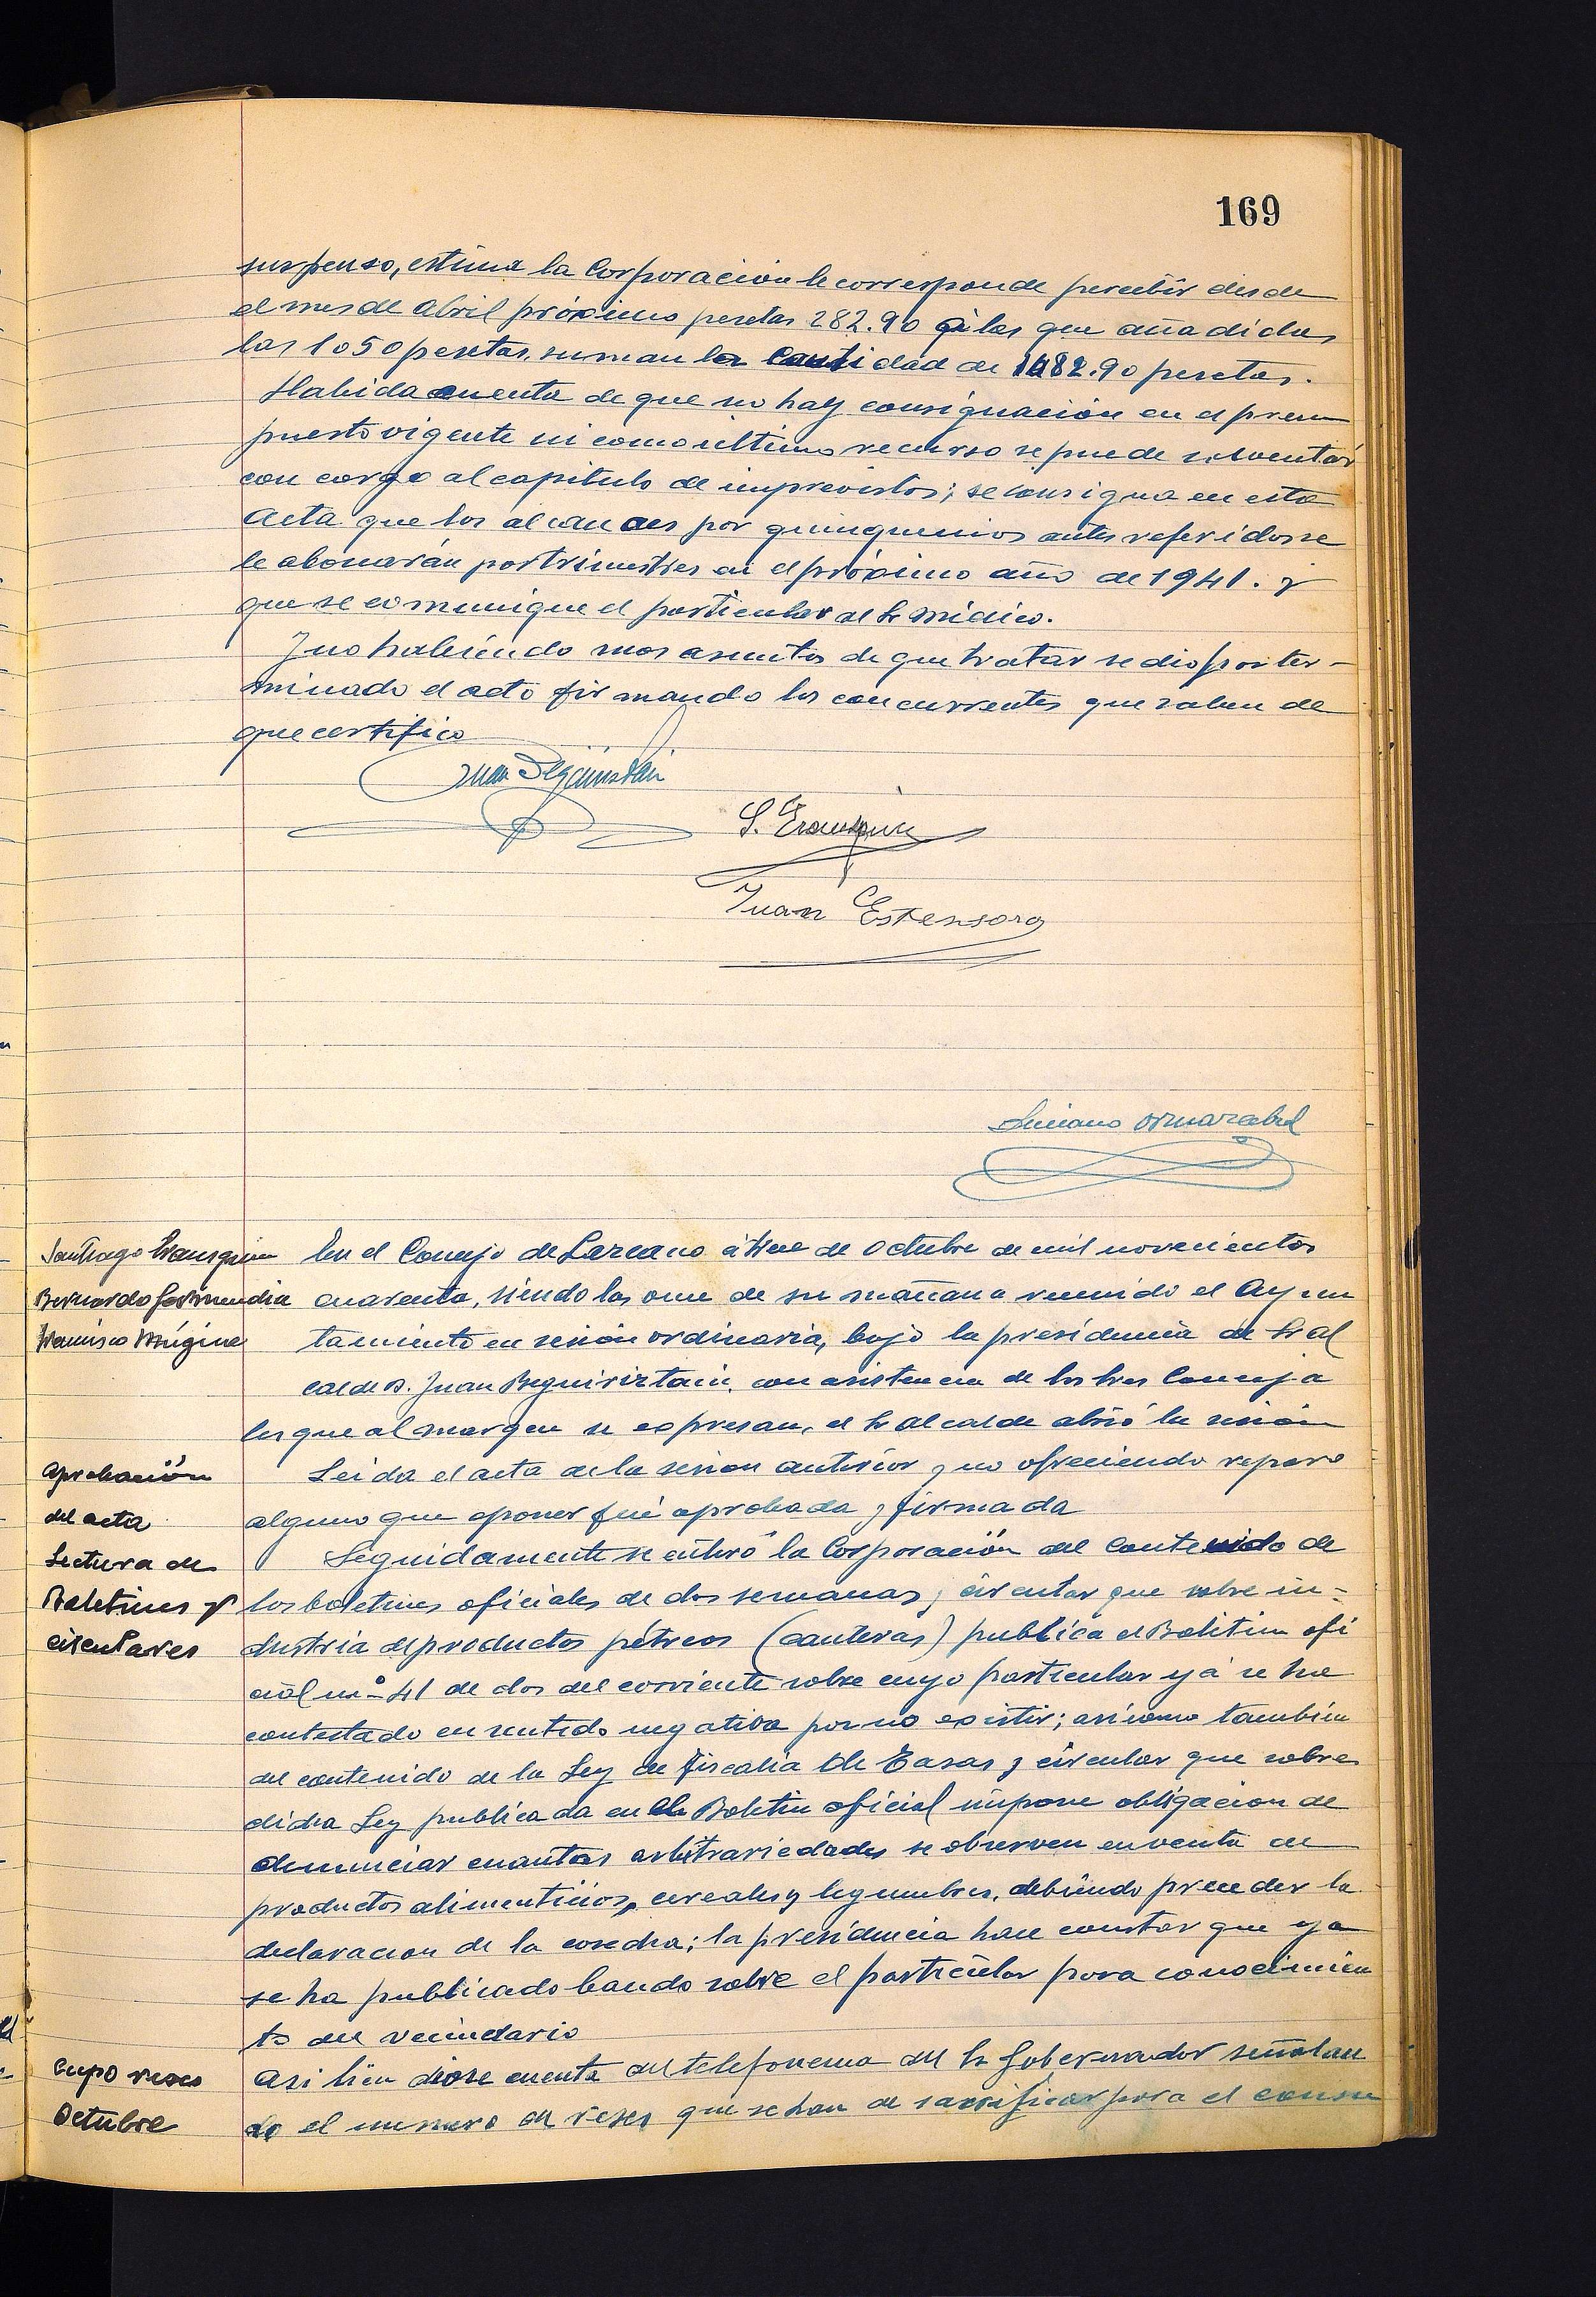 169
suspenso, estima la Corporación le corresponde percibir desde
el mes de Abril próximo pesetas 282.90 a las que añadidas
las 1050 pesetas, suman la Cantidad de 1682.90 pesetas.
Habida cuenta de que no hay consignación en el presu
puesto vigente ni como último recurso se puede solventar
con cargo al capitulo de imprevistos; se consigna en esta
Acta que los alcances por quinquenios antes referidos se
le abonarán por trimestres en el próximo año de 1941. y
que se comunique el particular al Sr Médico.
Y no habiendo mas asuntos de que tratar se dio por ter-
minado el acto firmando los concurrentes que saben de
que certifico
Juan Beguiristain
S. Erausquin
Juan Estensoro
Luciano Ormazabal
Santiago Erausquin
Bernardo Garmendia
Francisco Múgica
En el Concejo de Lazcano á trece de Octubre de mil novecientos
cuarenta, siendo las once de su mañana reunido el Ayun
tamiento en sesión ordinaria, bajo la presidencia de Sr Al
calde D. Juan Beguiriztain, con asistencia de los tres Conceja
les que al margen se expresan, el Sr Alcalde abrió la sesión
Aprobación
del acta
Leida el acta de la sesion anterior y no ofreciendo reparo
alguno que oponer fué aprobada y firmada
Lectura de
Boletines y
circulares
Seguidamente se enteró la Corporación del Contenido de
los boletines oficiales de dos semanas, circular que sobre in-
dustria de productos pétreos (canteras) publica el Boletin ofi
cial nº 41 de dos del corriente sobre cuyo particular yá se ha
contestado en sentido negativo por no existir; asi como también
del contenido de la Ley de Fiscalia de Tasas y circular que sobre
dicha Ley publicada en el Boletin oficial impone obligacion de
denunciar cuantas arbitrariedades se observen en venta de
productos alimenticios, cereales y legumbres, debiendo preceder la
declaracion de la cosecha; la presidencia hace constar que ya
se ha publicado bando sobre el particular para conocimien
to del vecindario
Cupo reses
Octubre
Asi bien diose cuenta del telefonema del Sr Gobernador señalan
do el numero de reses que se han de sacrificar para el consu